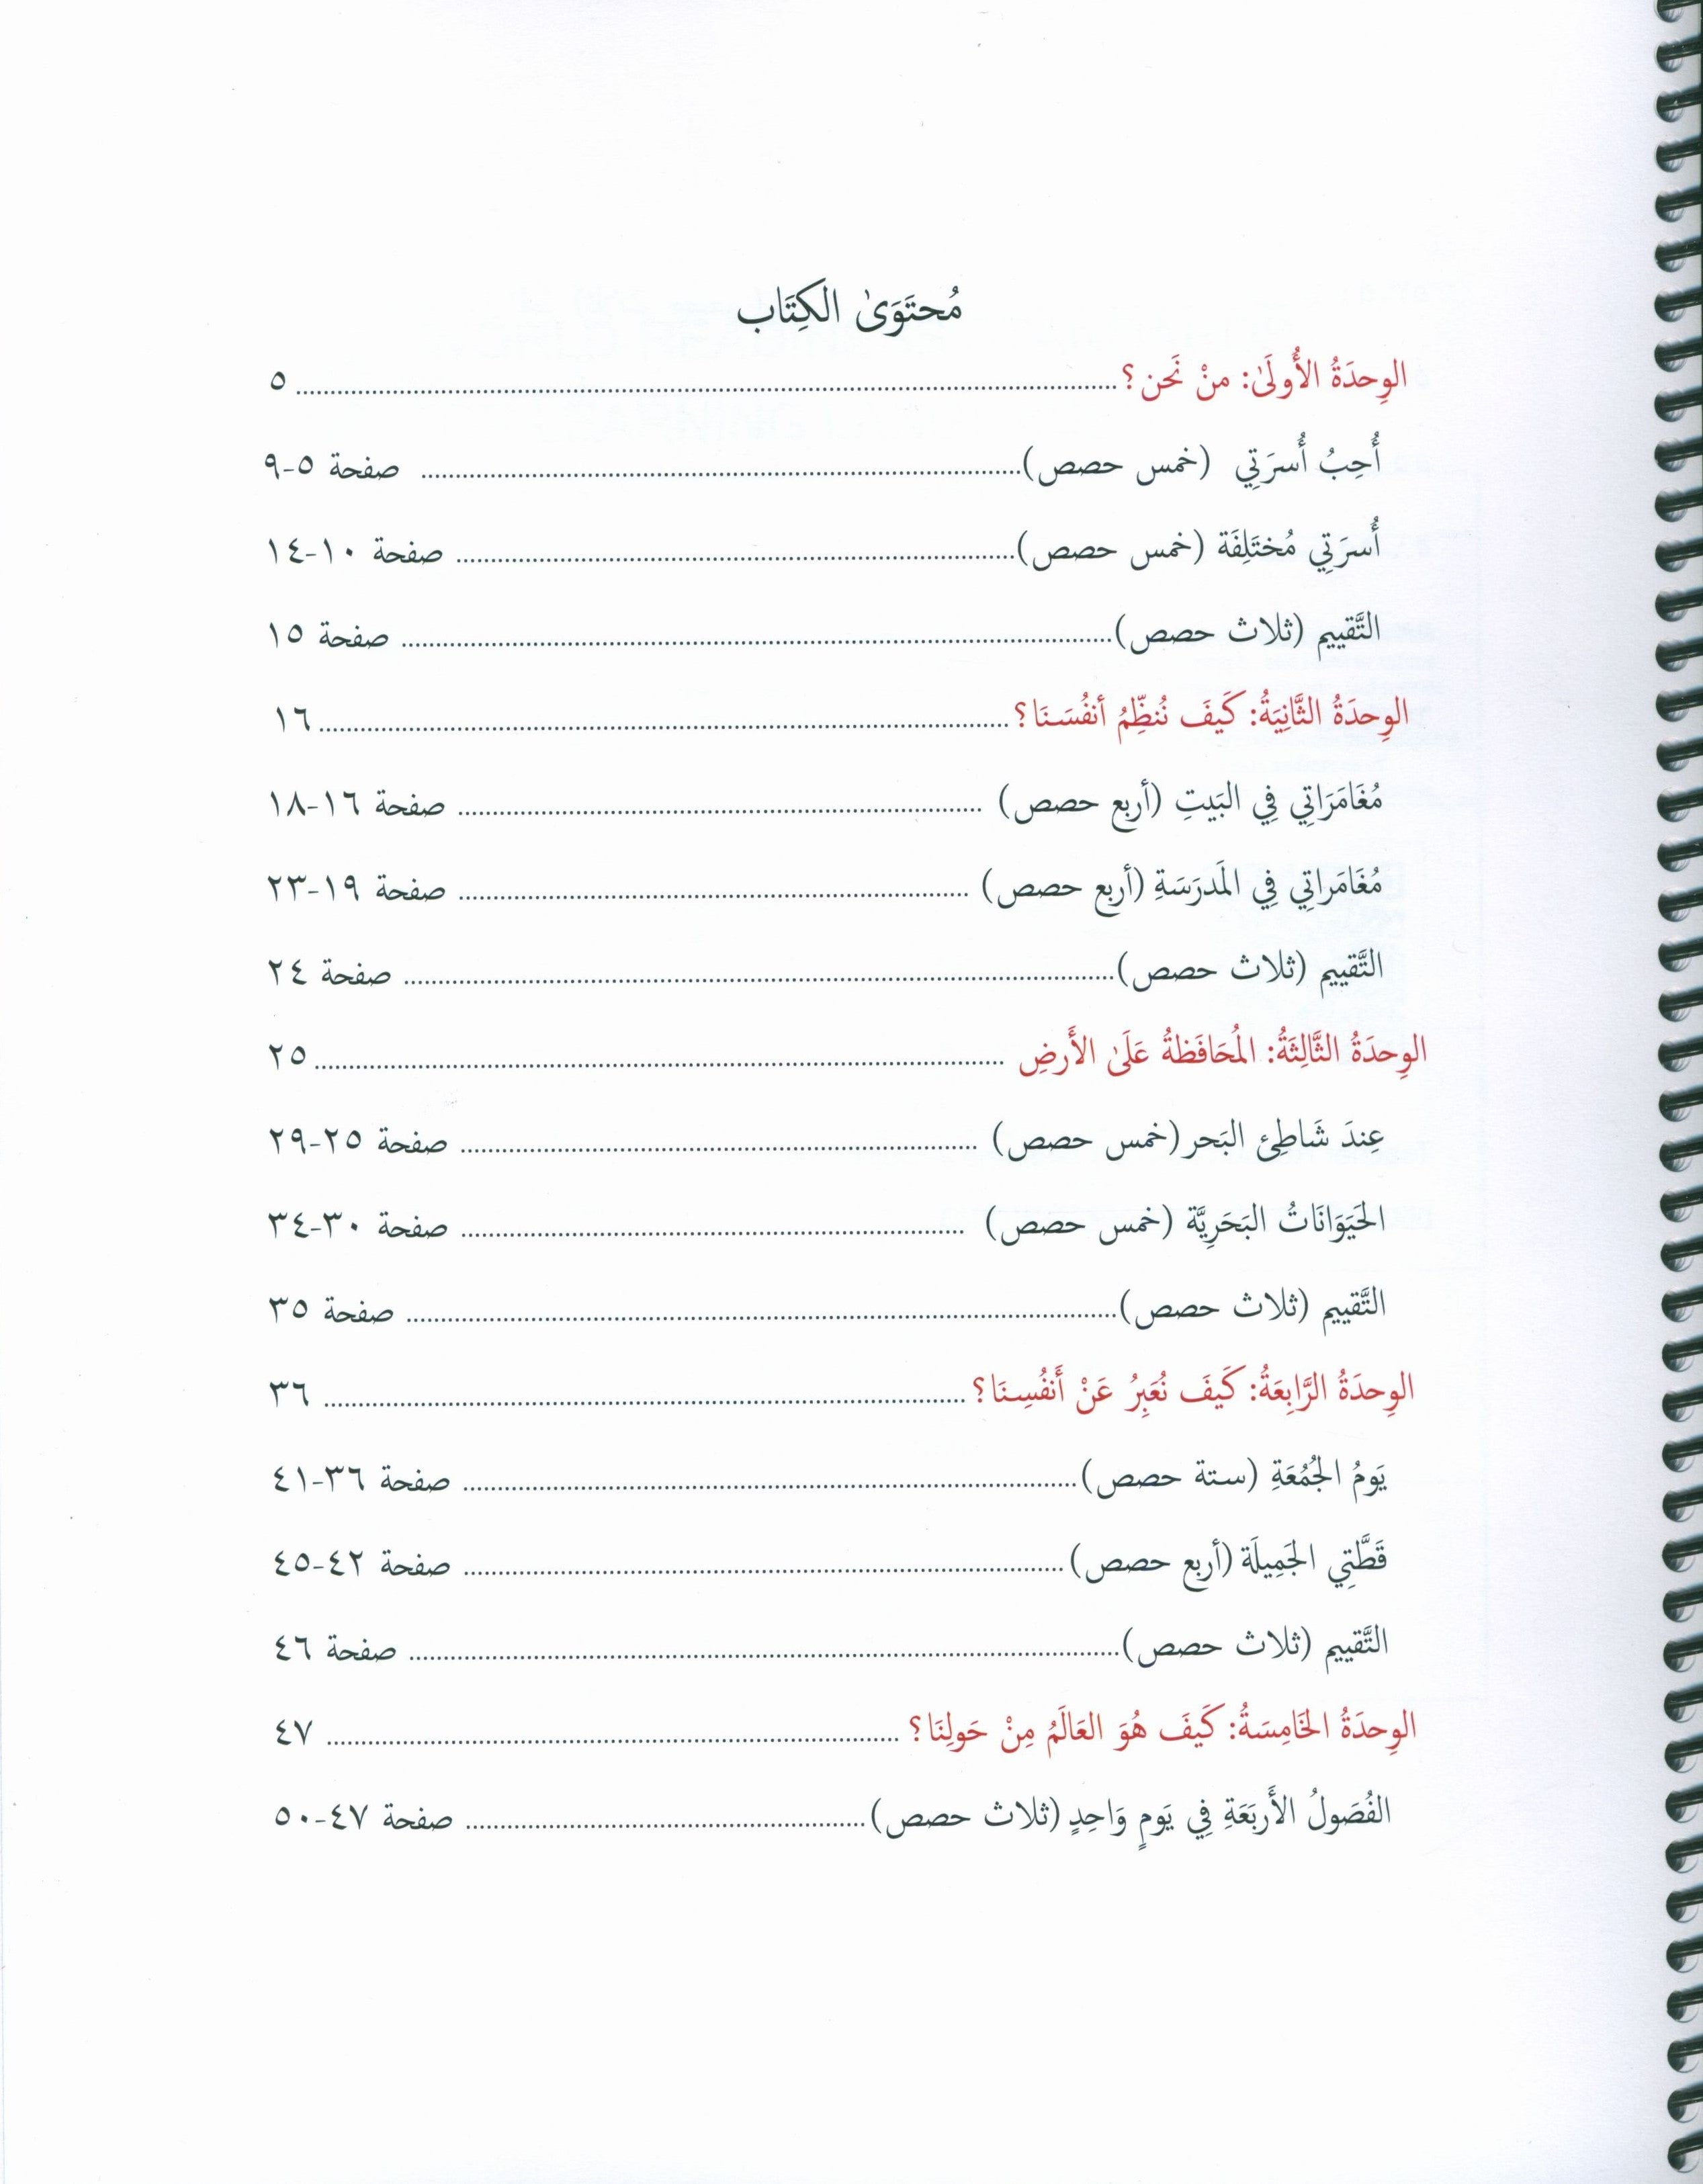 مُحتَوَىٰ الكِتَاب
الوِحدَةُ الأُولَىٰ: منْ نَحن؟ ........ ٥
أُحِبُ أُسرَتِي (خمس حصص) ........ صفحة ٥-٩
أُسرَتِي مُختَلِفَة (خمس حصص) ........ صفحة ١٠-١٤
التَّقييم (ثلاث حصص) ........ صفحة ١٥
الوِحدَةُ الثَّانِيَةُ: كَيفَ نُنظِّمُ أنفُسَنَا؟ ........ ١٦
مُغَامَرَاتِي فِي البَيتِ (أربع حصص) ........ صفحة ١٦-١٨
مُغَامَراتِي فِي المَدرَسَةِ (أربع حصص) ........ صفحة ١٩-٢٣
التَّقييم (ثلاث حصص) ........ صفحة ٢٤
الوِحدَةُ الثَّالِثَةُ: المُحَافَظةُ عَلَىٰ الأَرضِ ........ ٢٥
عِندَ شَاطِئ البَحر (خمس حصص) ........ صفحة ٢٥-٢٩
الحَيَوَانَاتُ البَحَرِيَّة (خمس حصص) ........ صفحة ٣٠-٣٤
التَّقييم (ثلاث حصص) ........ صفحة ٣٥
الوِحدَةُ الرَّابِعَةُ: كَيفَ نُعَبِرُ عَنْ أَنفُسِنَا؟ ........ ٣٦
يَومُ الجُمُعَةِ (ستة حصص) ........ صفحة ٣٦-٤١
قَطَّتِي الجَمِيلَة (أربع حصص) ........ صفحة ٤٢-٤٥
التَّقييم (ثلاث حصص) ........ صفحة ٤٦
الوِحدَةُ الخَامِسَةُ: كَيفَ هُوَ العَالَمُ مِنْ حَولِنَا؟ ........ ٤٧
الفُصَولُ الأَربَعَةِ فِي يَومٍ وَاحِدٍ (ثلاث حصص) ........ صفحة ٤٧-٥٠